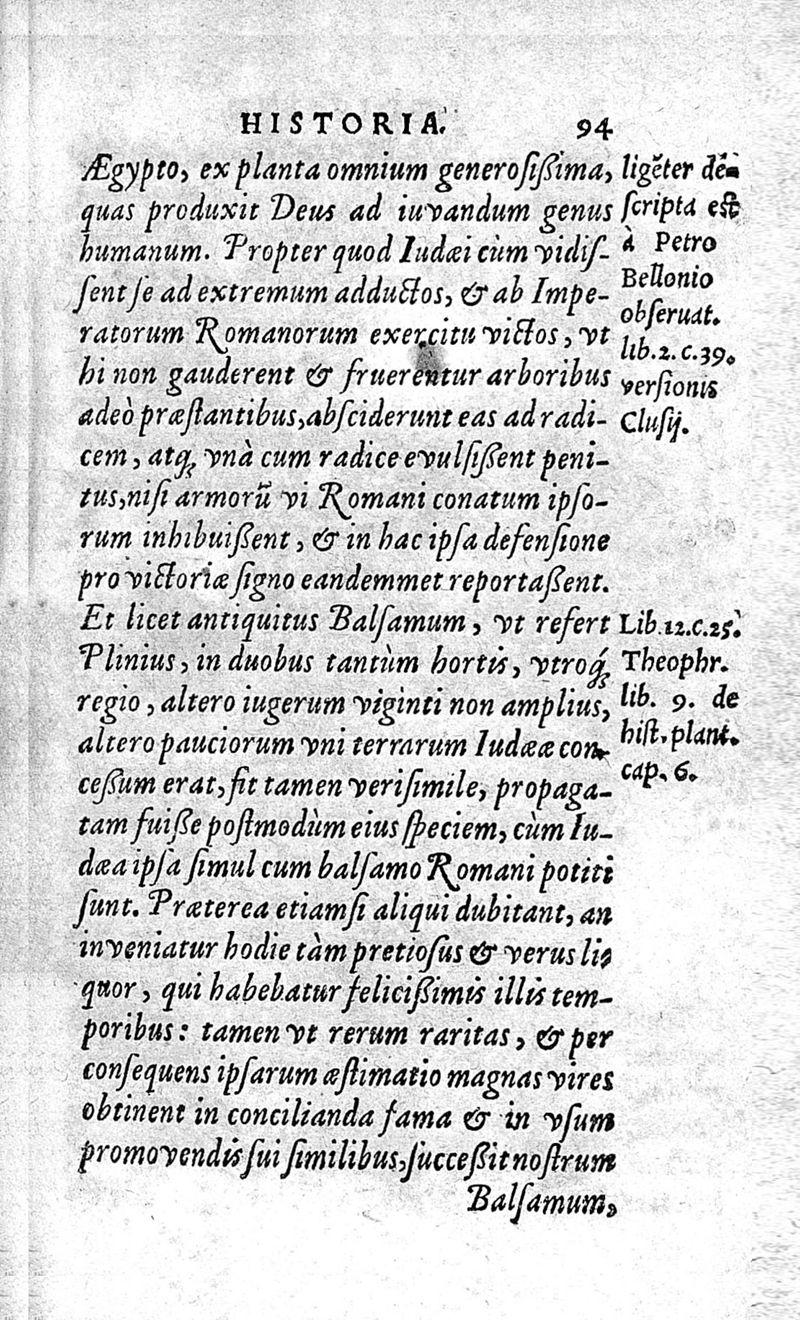 HISTORIA. 94
Ægypto, ex planta omnium generosißima,
quas produxit Deus ad iuvandum genus
humanum. Propter quod Iudæi cùm vidiſ-
ſent ſe ad extremum adductos, & ab Impe-
ratorum Romanorum exercitu victos, vt
hi non gauderent & fruerentur arboribus
adeò præſtantibus, abſciderunt eas ad radi-
cem, atq; vnà cum radice evulſißent peni-
tus, niſi armorũ vi Romani conatum ipſo-
rum inhibuißent, & in hac ipſa defenſione
pro victoriæ ſigno eandemmet reportaßent.
Et licet antiquitus Balſamum, vt refert
Plinius, in duobus tantùm hortis, vtroq́;
regio, altero iugerum viginti non amplius,
altero pauciorum vni terrarum Iudææ con-
ceßum erat, fit tamen veriſimile, propaga-
tam fuiße poſtmodùm eius ſpeciem, cùm Iu-
dæa ipſa ſimul cum balſamo Romani potiti
ſunt. Præterea etiamſi aliqui dubitant, an
inveniatur hodie tàm pretioſus & verus li-
quor, qui habebatur felicißimis illis tem-
poribus: tamen vt rerum raritas, & per
conſequens ipſarum æſtimatio magnas vires
obtinent in concilianda fama & in vſum
promovendis ſui ſimilibus, ſucceßit noſtrum
Balſamum,
ligẽter de-
ſcripta eſt
à Petro
Bellonio
obſeruat.
lib. 2. c. 39.
verſionis
Cluſij.
Lib. 12. c. 25.
Theophr.
lib. 9. de
hiſt. plant.
cap. 6.